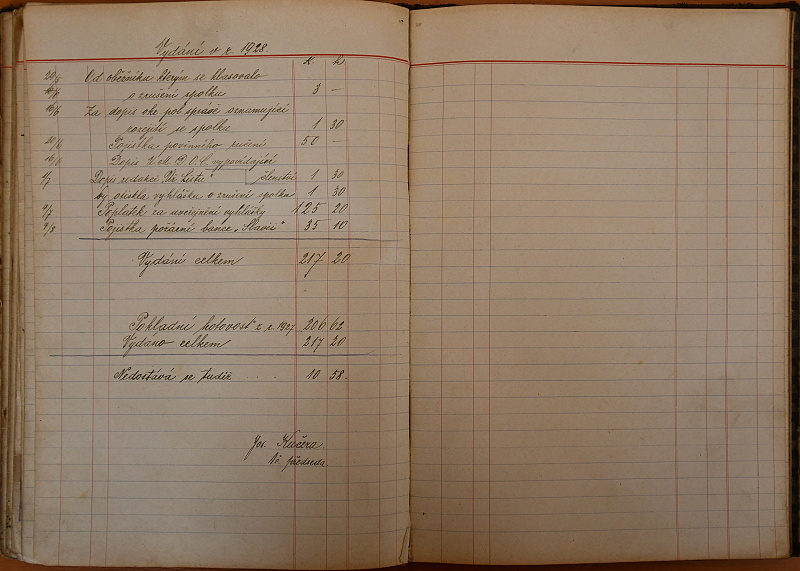 Vydání v r. 1928.
K h
Od oběžníka kterým se hlasovalo
o zrušení spolku 3 —
16/6 Za dopis okr. pol. správě oznamující
rozejití se spolku 1 30
20/6 Pojistka povinného ručení 50 —
16/6 Dopis V. M. P. O. C. vypovídající
Dopis redakci „Listu" členství 1 30
by otiskla vyhlášku o zrušení spolku 1 30
Poplatek za uveřejnění vyhlášky 125 20
9/8 Pojistka požární bance „Slavii" 35 10
Vydání celkem 217 20
Pokladní hotovost z r. 1927 206 62
Vydáno celkem 217 20
Nedostává se tudíž . . . 10 58.
Jos. Kučera
předseda.